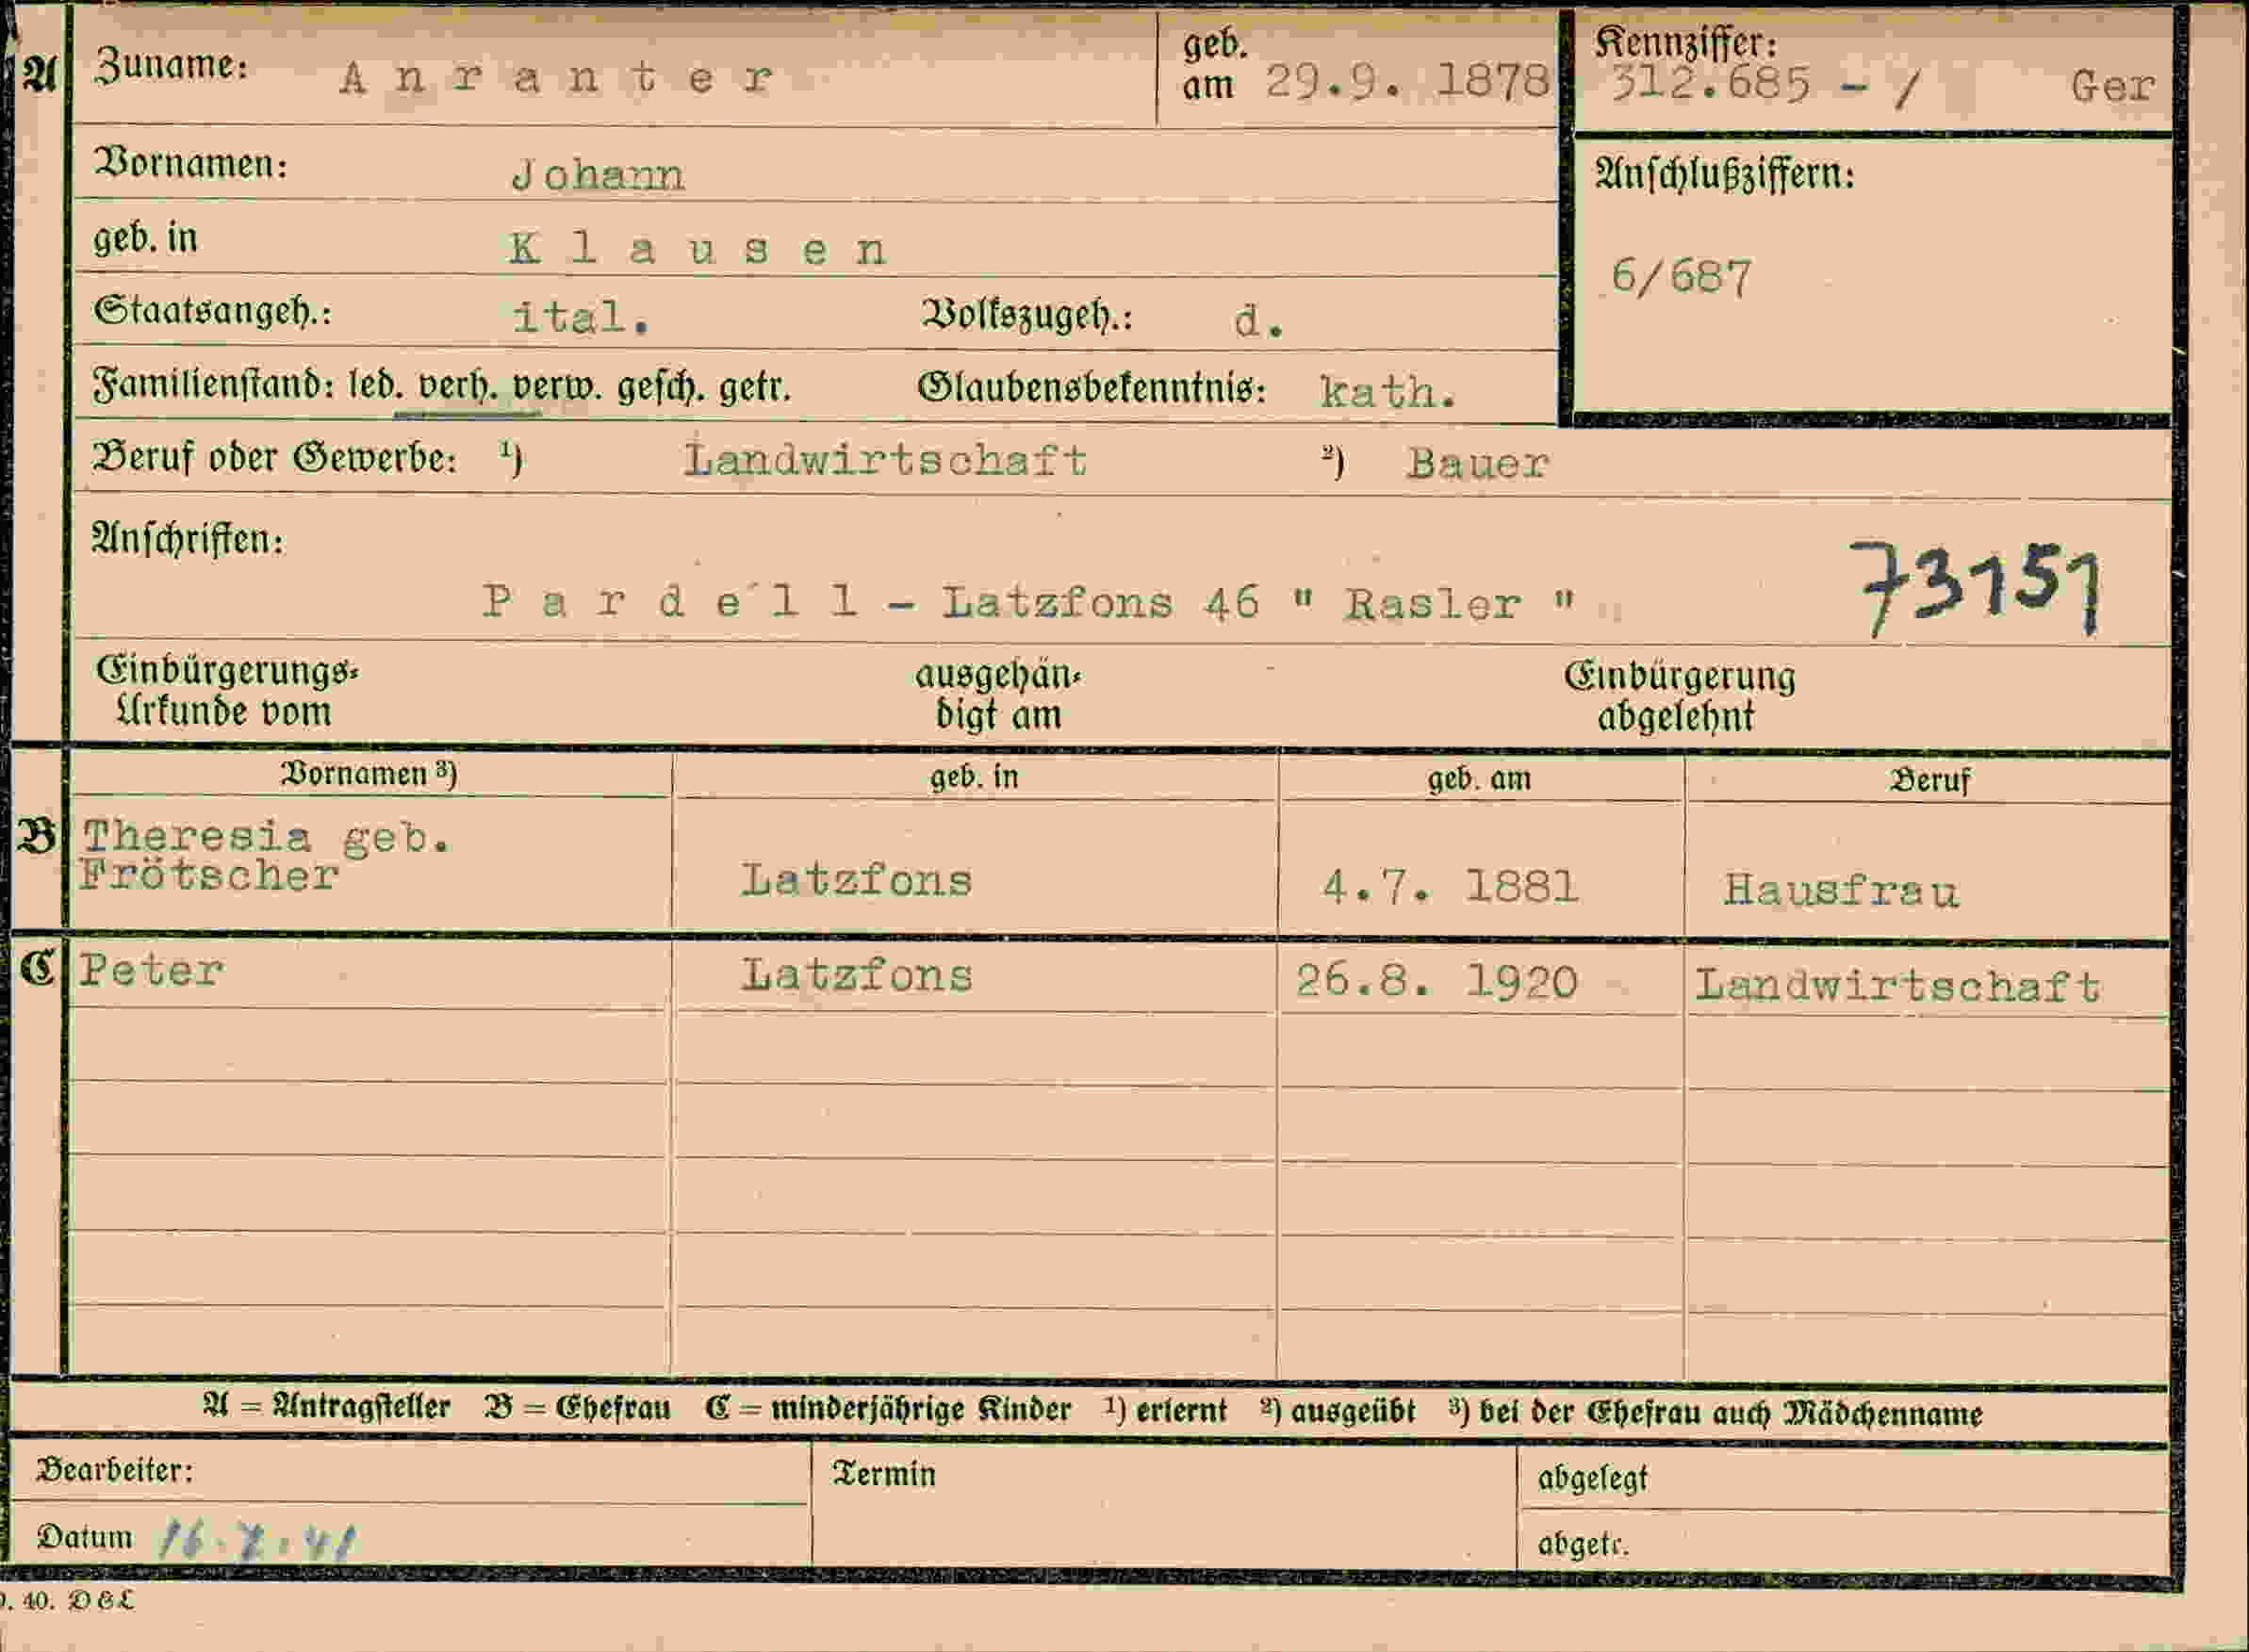 A Zuname: Anranter geb. am 29.9. 1878 Kennziffer: 312.685 - / Ger
Vornamen: Johann Anschlußziffern:
geb. in Klausen 6/687
Staatsangeh.: ital. Volkszugeh.: d.
Familienstand: led. verh. verw. gesch. getr. Glaubensbekenntnis: kath.
Beruf oder Gewerbe: ¹) Landwirtschaft ²) Bauer
Anschriften: 73151
Pardell - Latzfons 46 " Rasler "
Einbürgerungs- ausgehän- Einbürgerung
Urkunde vom digt am abgelehnt
Vornamen ³) geb. in geb. am Beruf
B Theresia geb.
Frötscher Latzfons 4.7. 1881 Hausfrau
C Peter Latzfons 26.8. 1920 Landwirtschaft
A = Antragsteller B = Ehefrau C = minderjährige Kinder ¹) erlernt ²) ausgeübt ³) bei der Ehefrau auch Mädchenname
Bearbeiter: Termin abgelegt
Datum 16.7.41 abgetr.
40. D&L